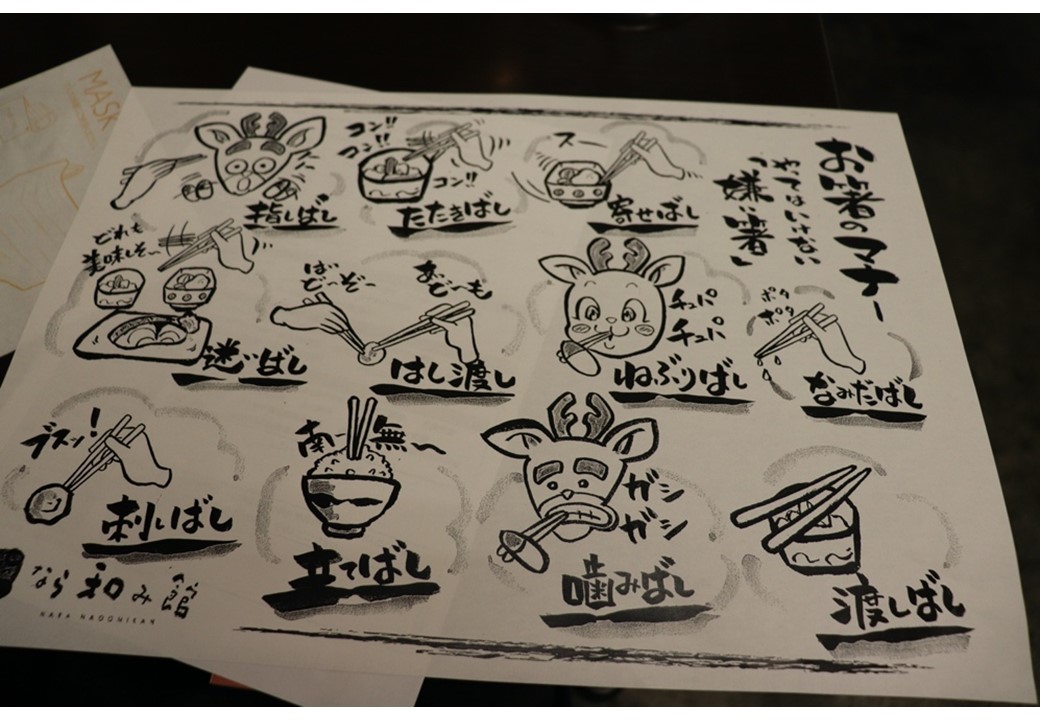 お箸のマナー
やってはいけない
「嫌い箸」
スー
寄せばし
コン!!
コン!!
コン!!
たたきばし
指しばし
ポタ
ポタ
なみだばし
チュパ
チュパ
ねぶりばし
あ
どーも
ば
どーぞー
はし渡し
どれも
美味しそ〜
迷いばし
渡しばし
ガシ
ガシ
噛みばし
南〜無〜
立てばし
ブスッ!
刺しばし
なら和み館
NARA NAGOMIKAN
MASK